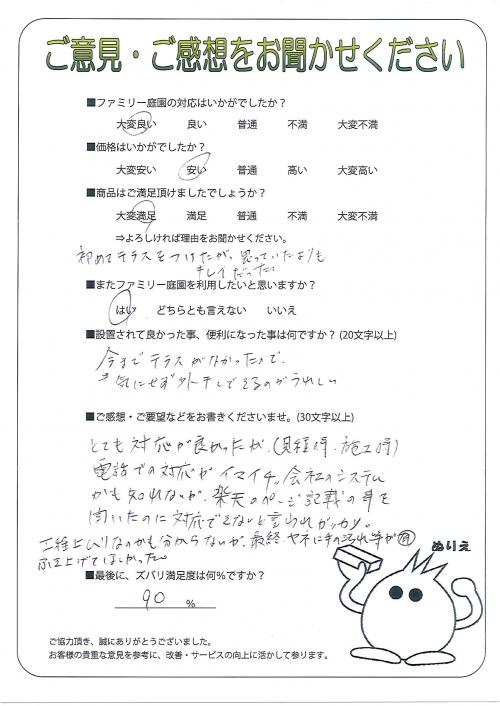 ご意見・ご感想をお聞かせください
■ファミリー庭園の対応はいかがでしたか？
大変良い 良い 普通 不満 大変不満
■価格はいかがでしたか？
大変安い 安い 普通 高い 大変高い
■商品はご満足頂けましたでしょうか？
大変満足 満足 普通 不満 大変不満
⇒よろしければ理由をお聞かせください。
初めてテラスをつけたが、思っていたよりも
キレイだった。
■またファミリー庭園を利用したいと思いますか？
はい どちらとも言えない いいえ
■設置されて良かった事、便利になった事は何ですか？(20文字以上)
今までテラスがなかったので、
気にせず外干しできるのがうれしい
■ご感想・ご要望などをお書きくださいませ。(30文字以上)
とても対応が良かったが、(見積時・施工時)
電話での対応がイマイチ。会社のシステム
かも知れないが、楽天のページ記載の事を
聞いたのに対応できないと言われガッカリ。
工程上ムリなのかも分からないが、最終ヤネに手の汚れ等が
ふき上げてほしかった。
ぬりえ
■最後に、ズバリ満足度は何％ですか？
90 %
ご協力頂き、誠にありがとうございました。
お客様の貴重な意見を参考に、改善・サービスの向上に活かして参ります。